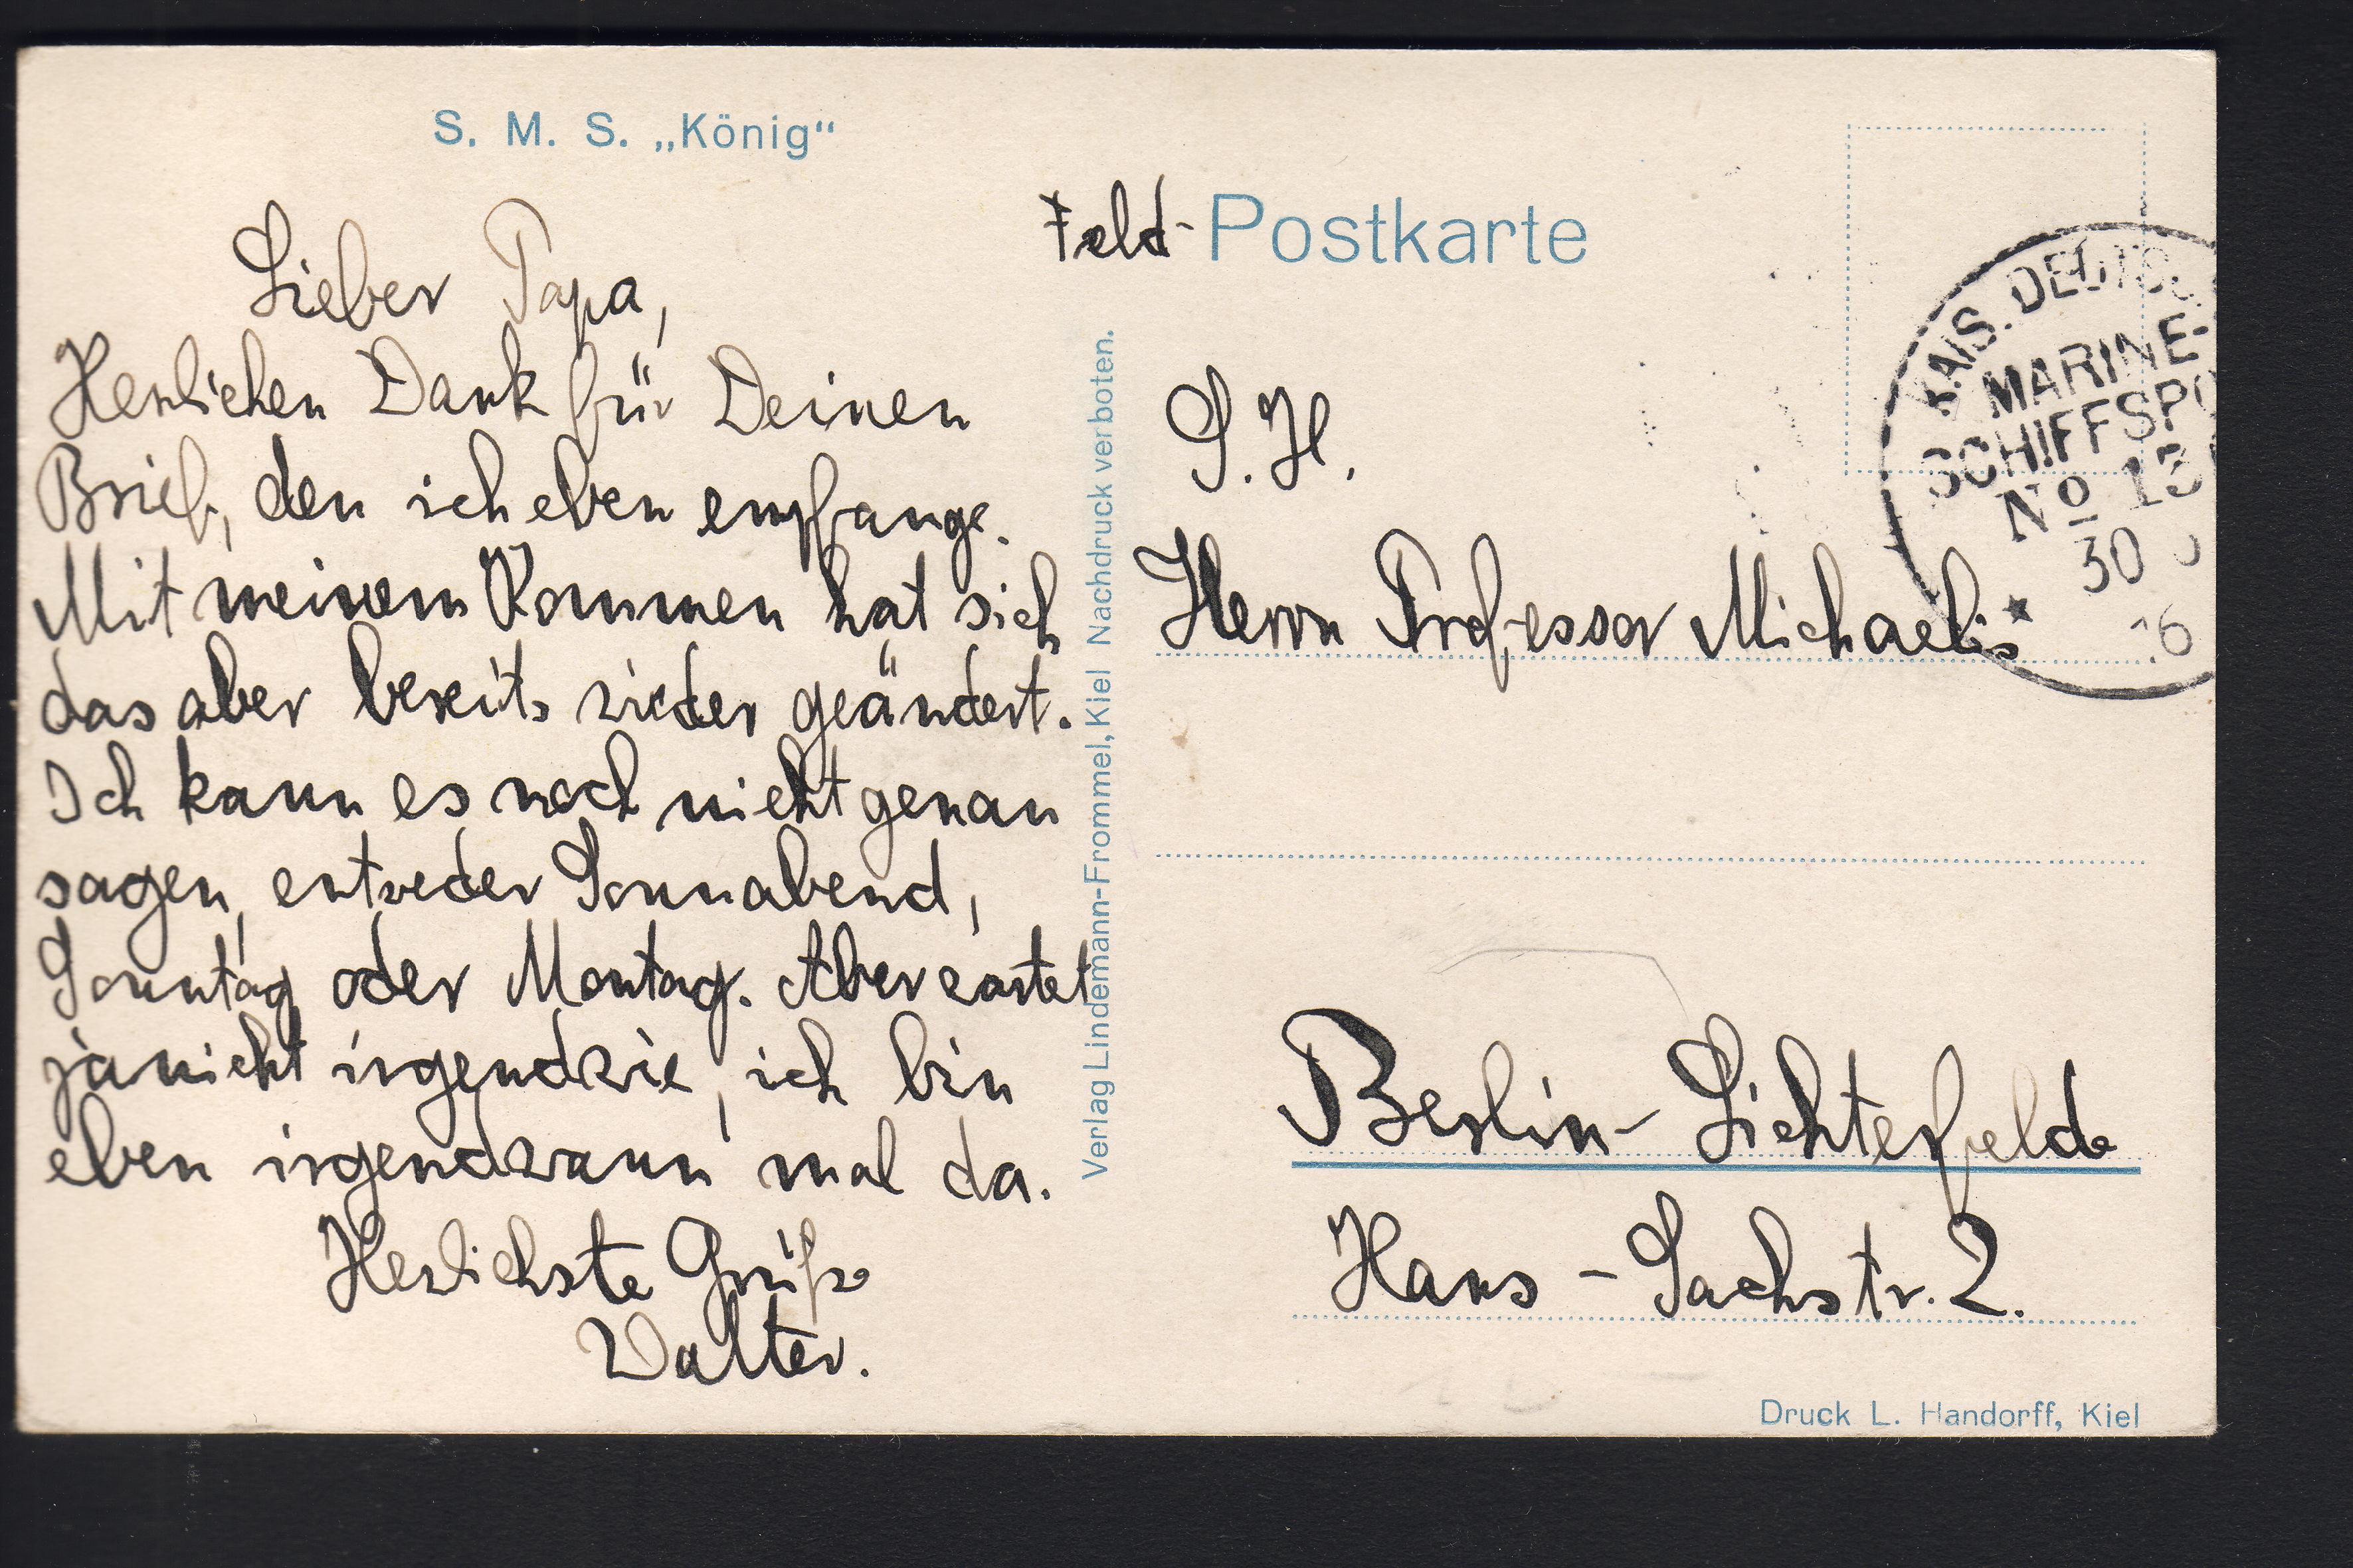 S. M. S. „König“
Lieber Papa,
Herzlichen Dank für Deinen
Brief, den ich eben empfange.
Mit meinem Kommen hat sich
das aber bereits wieder geändert.
Ich kann es noch nicht genau
sagen, entweder Sonnabend,
Sonntag oder Montag. Aber wartet
ja nicht irgendwie, ich bin
eben irgendwann mal da.
Herzlichste Grüße
Walter.
Verlag Lindemann-Frommel, Kiel Nachdruck verboten.
Feld-Postkarte
KAIS. DEUTSC
MARINE-
SCHIFFSPO
No 13
30
16
S.H.
Herrn Professor Michaelis
Berlin-Lichterfelde
Hans-Sachstr. 2.
Druck L. Handorff, Kiel